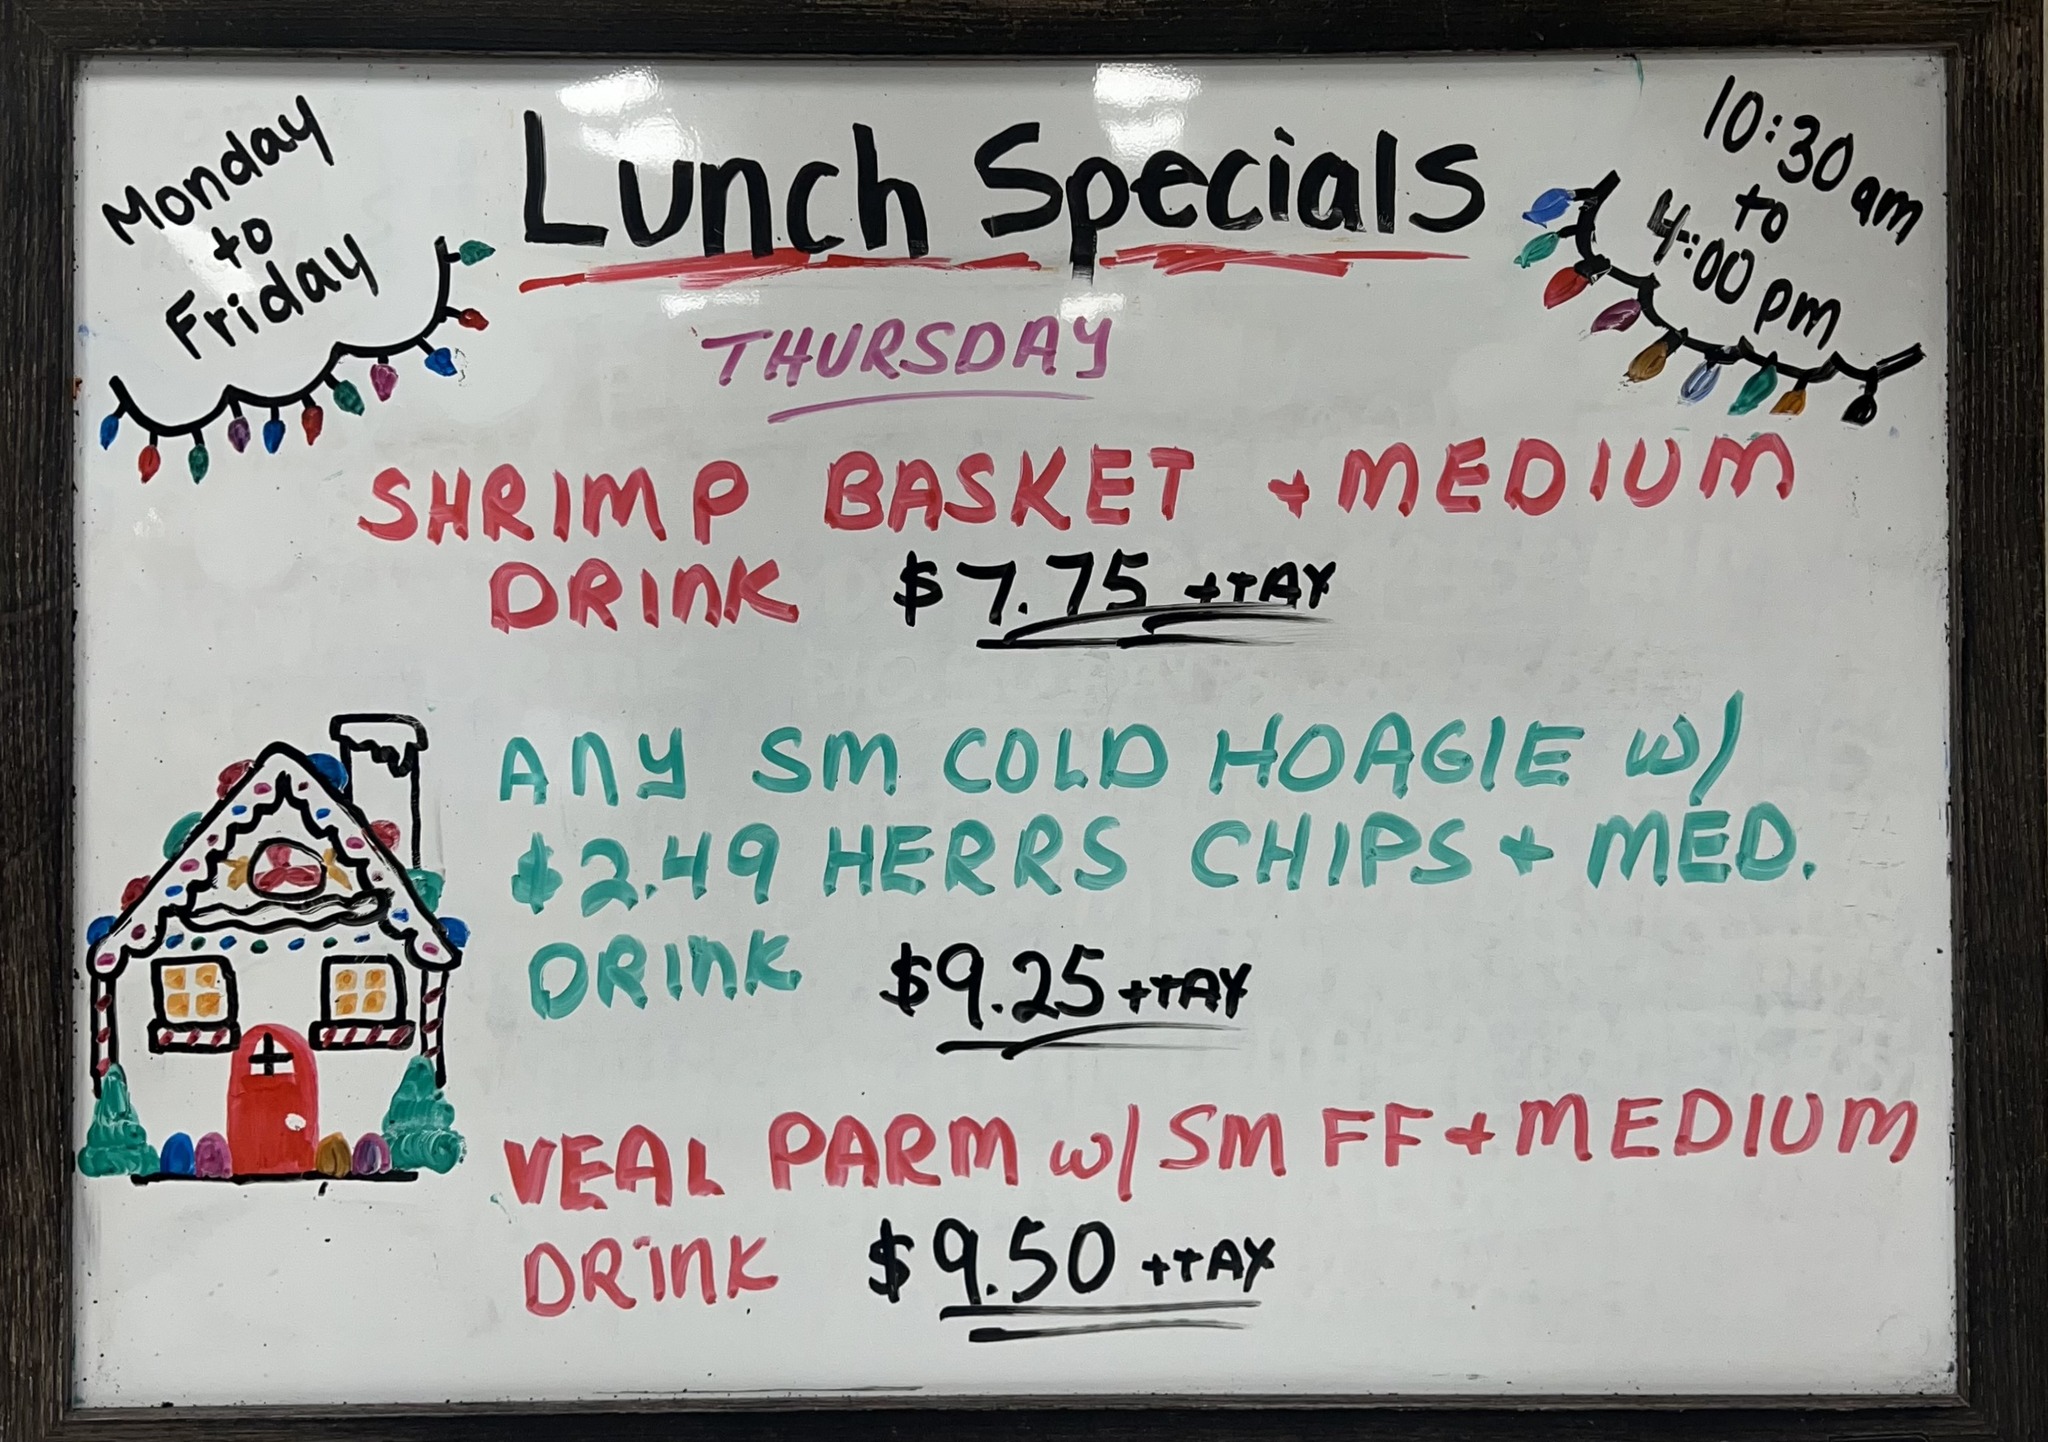 Monday
to
Friday
Lunch Specials
10:30 am
to
4:00 pm
THURSDAY
SHRIMP BASKET + MEDIUM
DRINK $7.75 +TAX
ANY SM COLD HOAGIE w/
$2.49 HERRS CHIPS + MED.
DRINK $9.25 +TAX
VEAL PARM w/ SM FF + MEDIUM
DRINK $9.50 +TAX